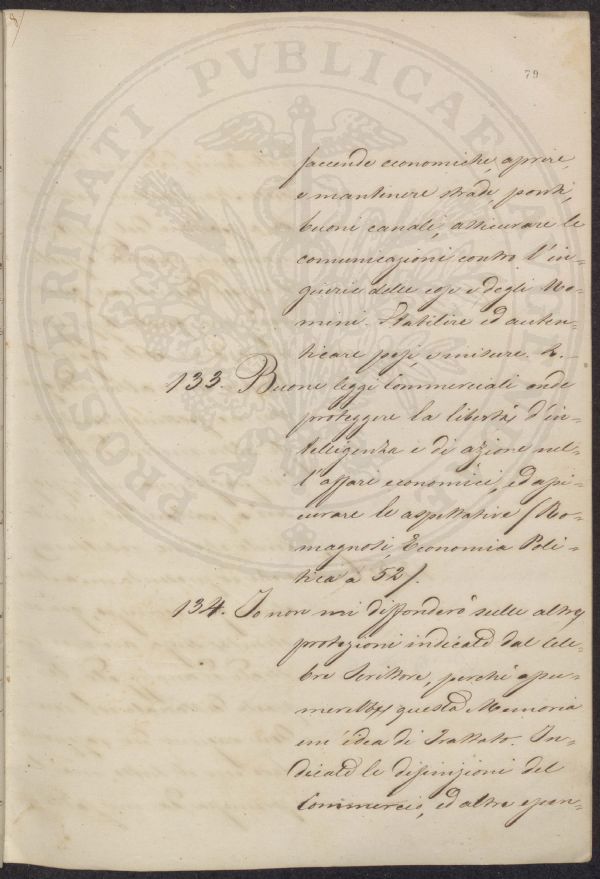 79
faccende economiche, aprire,
e mantenere strade ponti,
buoni canali, assicurare le
comunicazioni contro l'in=
giurie delle cose e degli Uo=
mini. Stabilire ed auten=
ticare pesi, e misure &.
133. Buone leggi Commerciali onde
proteggere la libertà d'in=
telligenza e di azione nel=
l'affari economici, ed assi=
curare le aspettative (Ro=
magnosi, Economia Poli=
tica a 52).
134. Io non mi diffonderò sulle altre
protezioni indicate dal Cele=
bre Scrittore, perchè assu=
merebbe questa Memoria
un'idea di Trattato. In=
dicate le definizioni del
Commercio, ed altre essen=
PROSPERITATI PVBLICAE